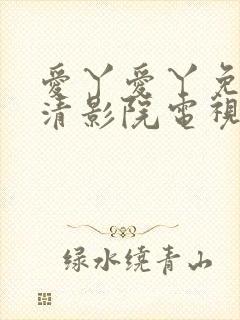 愛丫愛丫免
清影院電視
绿水绕青山